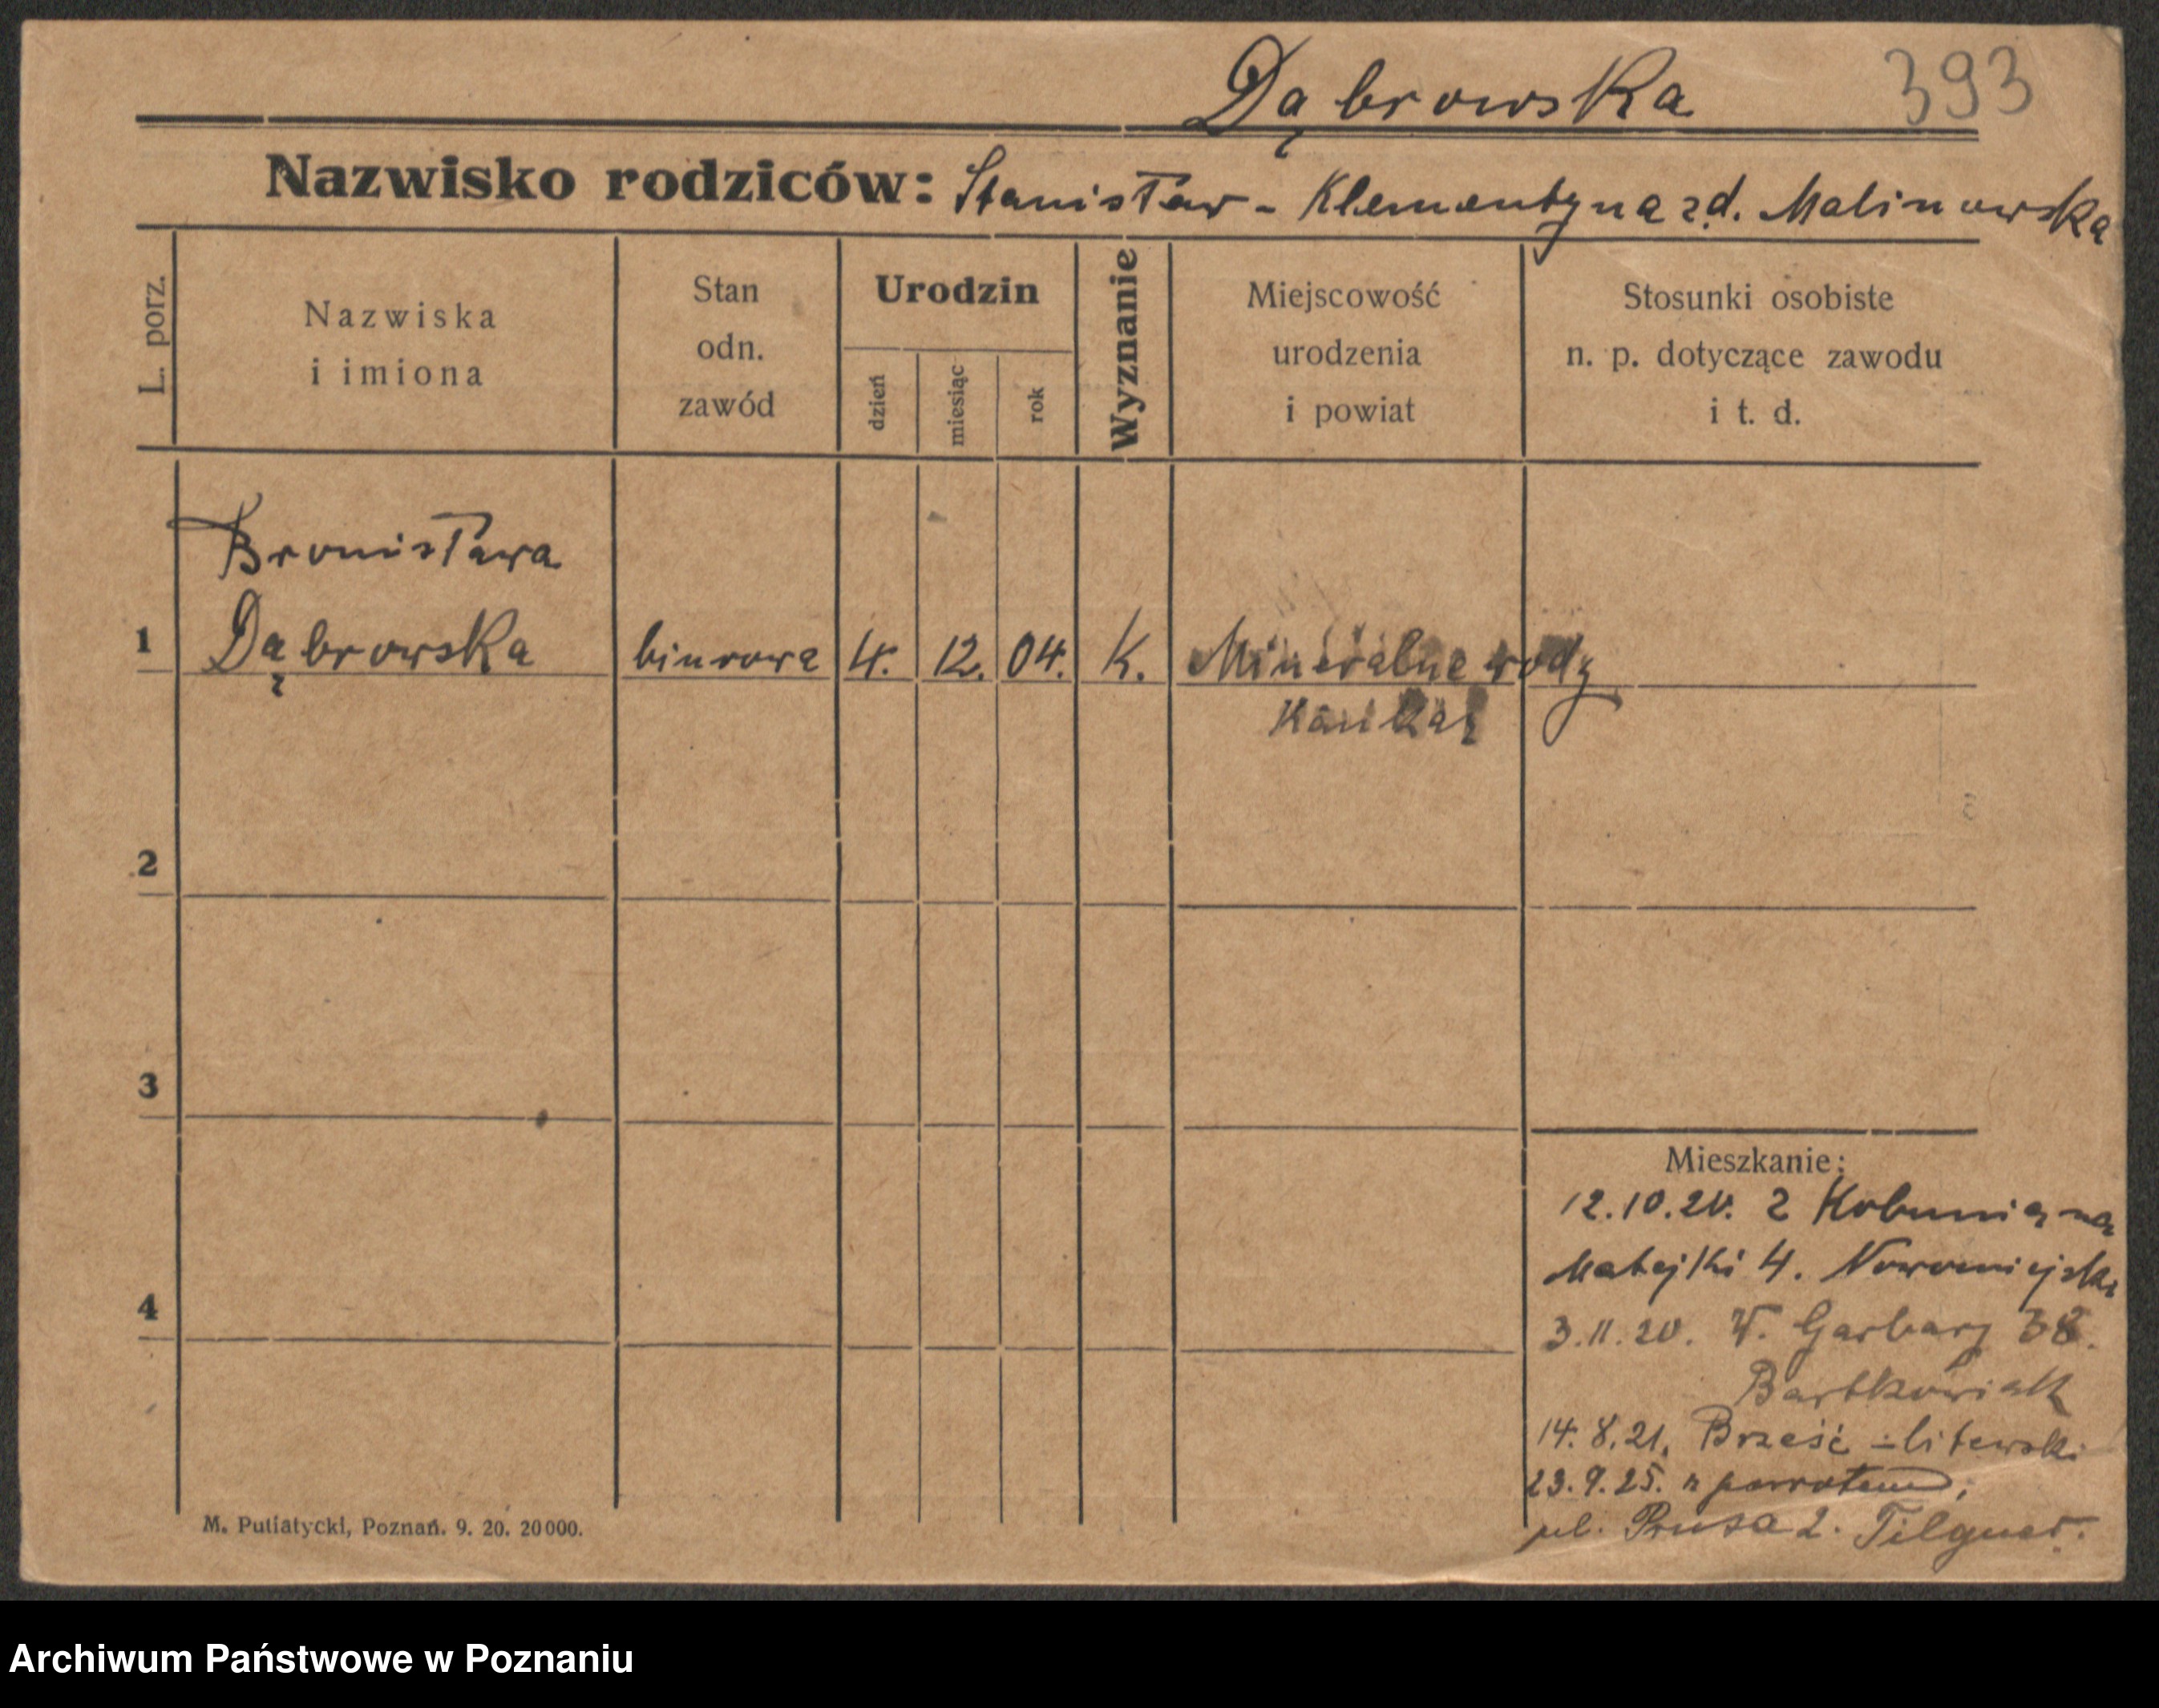 Dąbrowska 393
Nazwisko rodziców: Stanisław - Klementyna zd. Malinowska
L. porz.
Nazwiska
i imiona
Stan
odn.
zawód
Urodzin
dzień
miesiąc
rok
Wyznanie
Miejscowość
urodzenia
i powiat
Stosunki osobiste
n. p. dotyczące zawodu
i t. d.
Bronisława
1 Dąbrowska biurowa 4. 12. 04. K. Mineralne wody
Kaukaz
2
3
4
Mieszkanie:
12.10.20. z
Matejki 4. Nowomiejski
3.11.20. W. Garbary 38.
Bartkowiak
14.8.21. Brześć - litewski
23.9.25. z powrotem;
pl. Prusa 2. Tilgner.
M. Putiatycki, Poznań. 9. 20. 20000.
Archiwum Państwowe w Poznaniu